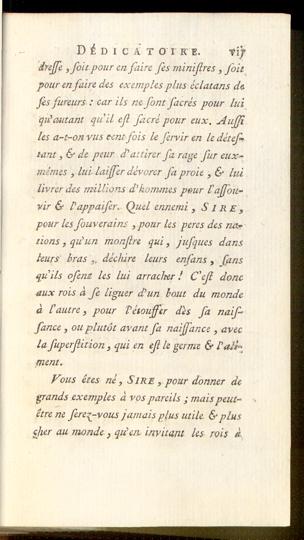 DÉDICATOIRE. vij
dresse, soit pour en faire ses ministres, soit
pour en faire des exemples plus éclatans de
ses fureurs : car ils ne sont sacrés pour lui
qu'autant qu'il est sacré pour eux. Aussi
les a-t-on vus cent fois le servir en le détes-
tant, & de peur d'attirer sa rage sur eux-
mêmes, lui laisser dévorer sa proie, & lui
livrer des millions d'hommes pour l'assou-
vir & l'appaiser. Quel ennemi, SIRE,
pour les souverains, pour les peres des na-
tions, qu'un monstre qui, jusques dans
leurs bras, déchire leurs enfans, sans
qu'ils osent les lui arracher ! C'est donc
aux rois à se liguer d'un bout du monde
à l'autre, pour l'étouffer dès sa nais-
sance, ou plutôt avant sa naissance, avec
la superstition, qui en est le germe & l'ali-
ment.
Vous êtes né, SIRE, pour donner de
grands exemples à vos pareils ; mais peut-
être ne serez-vous jamais plus utile & plus
cher au monde, qu'en invitant les rois à